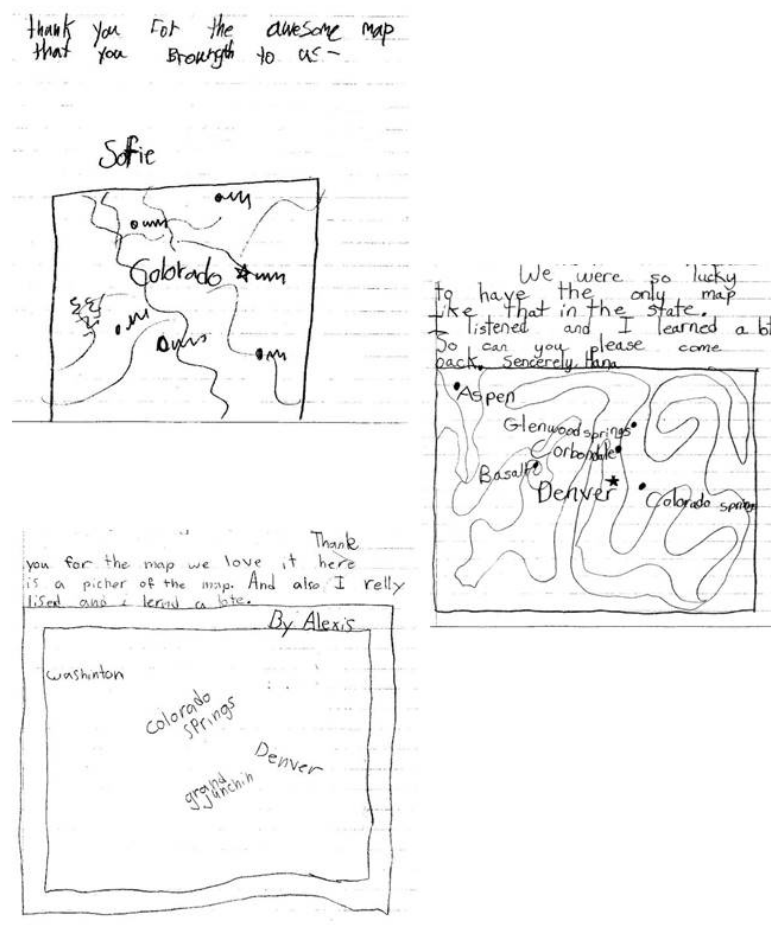 thank you For the awesome map
that you Brourgth to us-
Sofie
Colorado
We were so lucky
to have the only map
like that in the state.
I listened and I learned a lot
So can you please come
back. Sencerely, Hana
Aspen
Glenwood springs
Corbondale
Basalt
Denver
Colorado springs
Thank
you for the map we love it here
is a picher of the map. And also I relly
lised and i lernd a lote.
By Alexis
washinton
Colorado
springs
Denver
grand
junchin